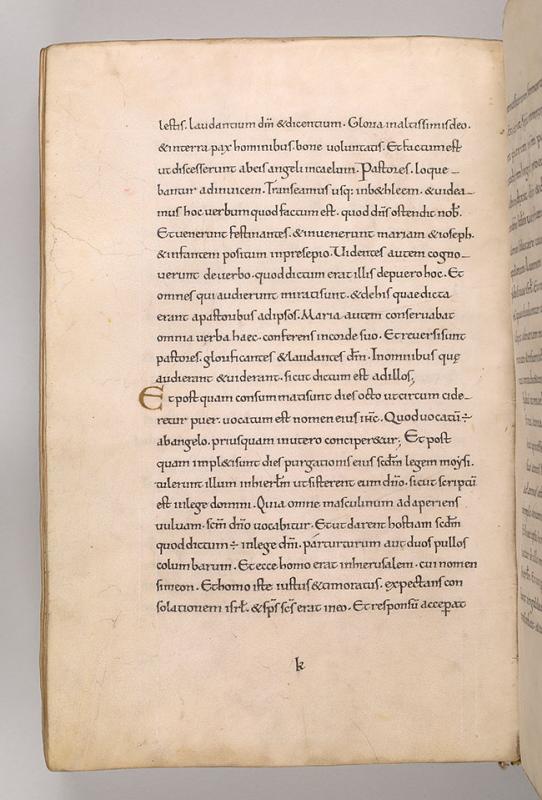 lestis. laudantium dm̄ &dicentium. Gloria inaltissimisdeo.
&interra pax hominibus bone voluntatis. Etfactumest
utdiscesserunt abeis angeli incaelum. Pastores. loque-
bantur adinuicem. Transeamus usq: inb&hleem. &uidea-
mus hoc uerbum quod factum est. quod dn̄s ostendit nob̄.
Etuenerunt festinantes. &inuenerunt mariam &ioseph.
&infantem positum inpresepio. Uidentes autem cogno-
uerunt deuerbo. quod dictum erat illis depuero hoc. Et
omnes qui audierunt miratisunt. &dehis quaedicta
erant apastoribus adipsos. Maria autem conseruabat
omnia uerba haec. conferens incorde suo. Etreuersisunt
pastores. glorificantes &laudantes dm̄. Inomnibus quę
audierant &uiderant. sicut dictum est adillos;
Et post quam consummatisunt dies octo utcircum cide-
retur puer. uocatum est nomen eius ih̄c. Quod uocatū ÷
abangelo. priusquam inutero conciper&ur; Et post
quam impl&isunt dies purgationis eius scdm̄ legem moysi.
tulerunt illum inhierl̄m utsisterent eum dn̄o. sicut scriptū
est inlege domini. Quia omne masculinum adaperiens
uuluam. scm̄ dn̄o uocabitur. Etut darent hostiam scdm̄
quod dictum ÷ inlege dn̄i. par turturum aut duos pullos
columbarum. Et ecce homo erat inhierusalem. cui nomen
simeon. Ethomo iste iustus &timoratus. expectans con
solationem isrl̄. &sp̄s sc̄s erat ineo. Et responsū acceperat
k